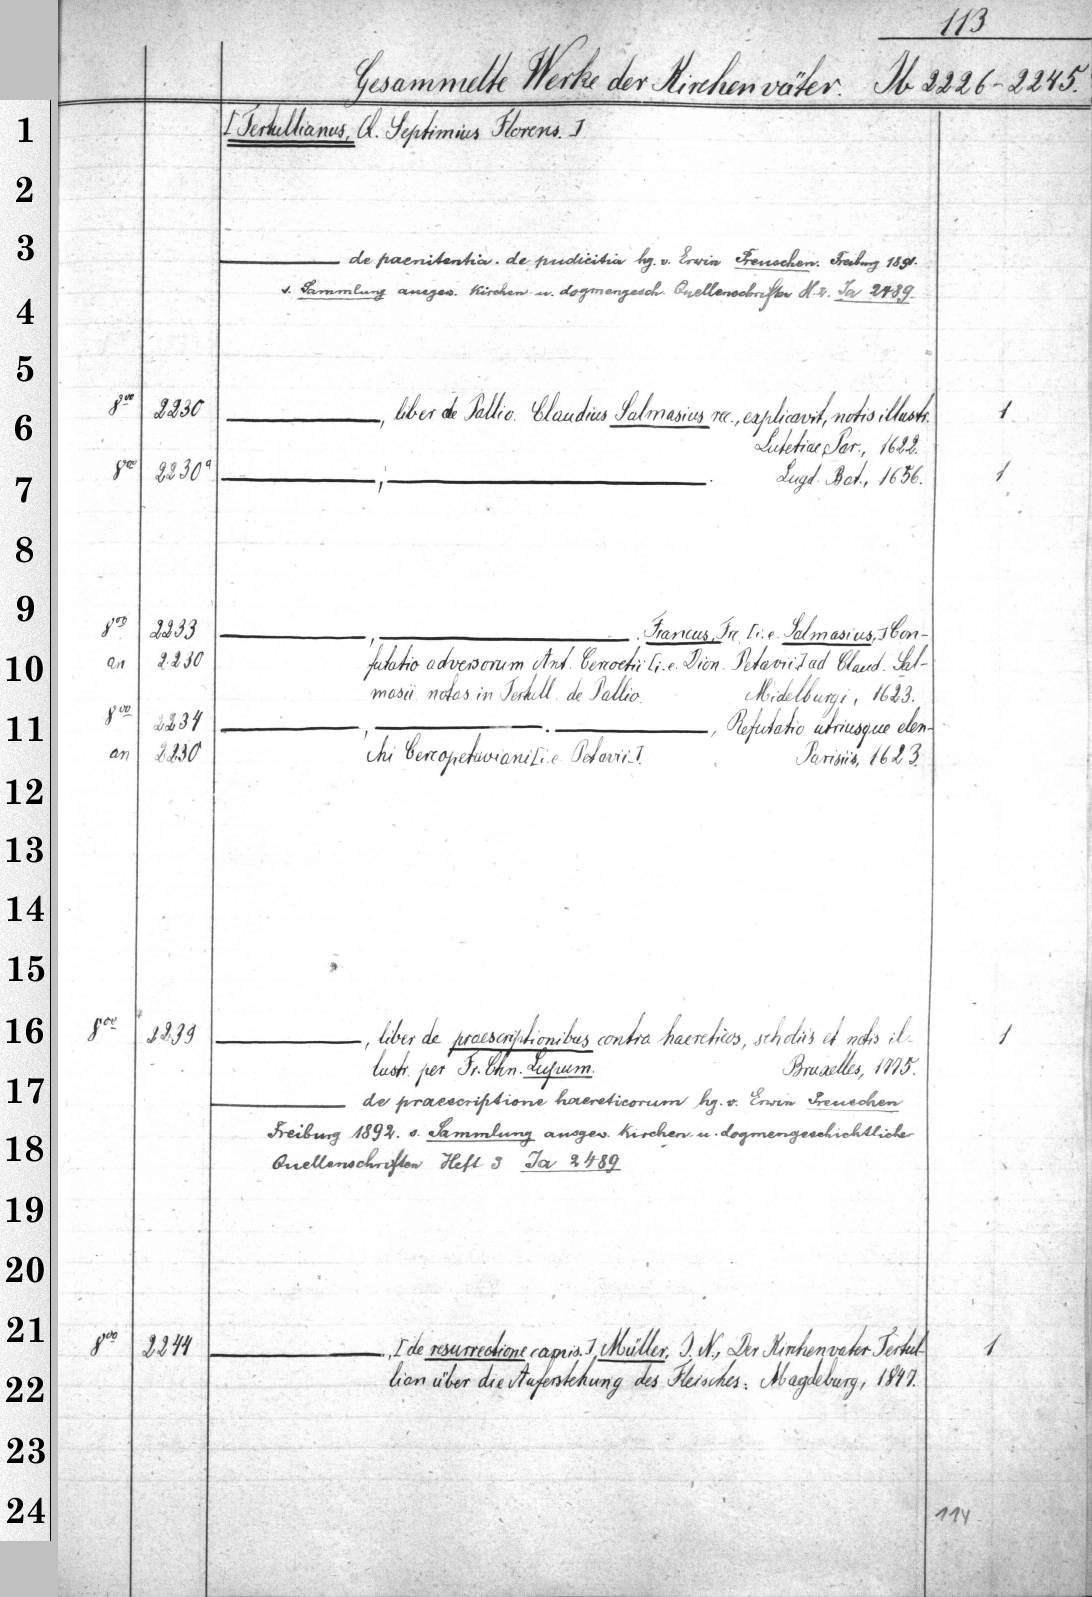 113
Gesammelte Werke der Kirchenväter. Ib 2226-2245.
[Tertullianus, Q. Septimius Florens.]
de paenitentia. de pudicitia hg. v. Erwin Preuschen. Freiburg 1891.
s. Sammlung ausgew. Kirchen u. dogmengesch. Quellenschriften H. 2. Ia 2489.
8vo 2230 , liber de Pallio. Claudius Salmasius rec., explicavit, notis illustr. 1
Lutetiae Par., 1622.
8vo 2230a , . Lugd. Bat., 1656. 1
8vo 2233 , . Francus, Fr. [i. e. Salmasius,] Con-
an 2230 futatio adversorum Ant. Cercoetii [i. e. Dion. Petavii] ad Claud. Sal-
masii notas in Tertull. de Pallio. Midelburgi, 1623.
8vo 2234 , . , Refutatio utriusque elen-
an 2230 chi Cercopetaviani [i. e. Petavii]. Parisiis, 1623.
8vo 2239 , liber de praescriptionibus contra haereticos, scholiis et notis il- 1
lustr. per Fr. Chn. Lupum. Bruxelles, 1775.
de praescriptione haereticorum hg. v. Erwin Preuschen
Freiburg 1892. s. Sammlung ausgew. Kirchen u. dogmengeschichtliche
Quellenschriften Heft 3 Ia 2489
8vo 2244 , [de resurrectione carnis.], Müller, J. N., Der Kirchenvater Tertul- 1
lian über die Auferstehung des Fleisches. Magdeburg, 1847.
114
1
2
3
4
5
6
7
8
9
10
11
12
13
14
15
16
17
18
19
20
21
22
23
24